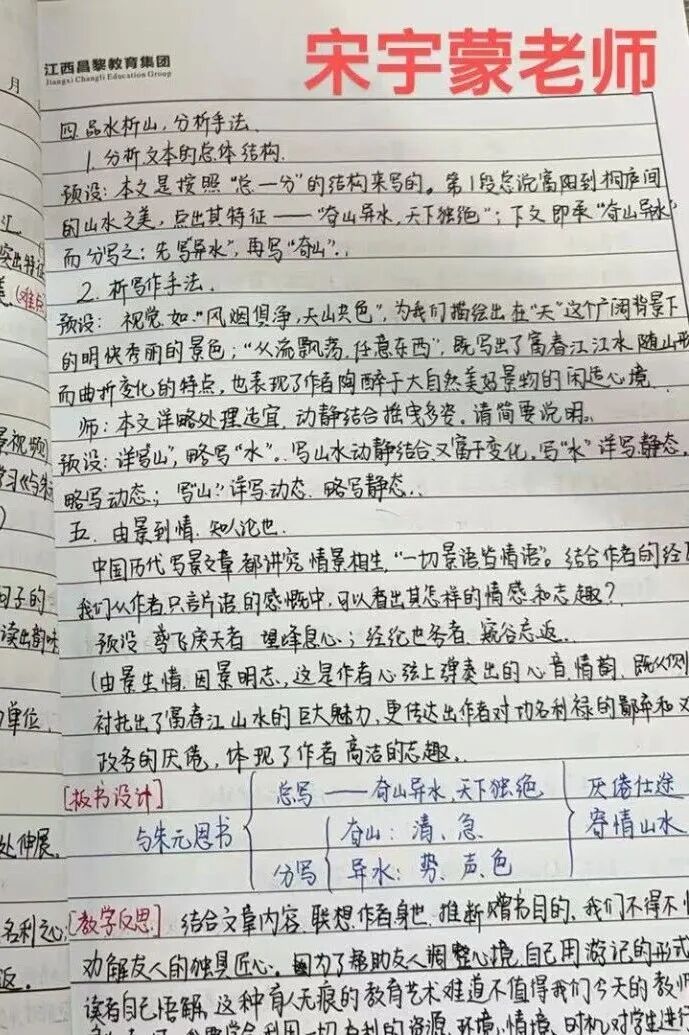 宋宇蒙老师
江西昌黎教育集团
Jiangxi Changli Education Group
月
四.品水析山,分析手法.
1.分析文本的总体结构.
预设:本文是按照“总一分”的结构来写的。第1段总说富阳到桐庐间
的山水之美,点出其特征——“奇山异水,天下独绝”;下文即承“奇山异水”
而分写之:先写“异水”,再写“奇山”..
2.析写作手法.
预设: 视觉.如“风烟俱净,天山共色”,为我们描绘出在“天”这个广阔背景下
的明快秀丽的景色;“从流飘荡.任意东西”,既写出了富春江江水随山形
而曲折变化的特点,也表现了作者陶醉于大自然美好景物的闲适心境.
师:本文详略处理适宜.动静结合摇曳多姿.请简要说明。
预设:详写“山”,略写“水”.写山水动静结合又富于变化.写“水”详写静态,
略写动态;写“山”详写动态.略写静态..
五.由景到情.知人论世.
中国历代写景文章都讲究情景相生,“一切景语皆情语”。结合作者的经
我们从作者只言片语的感慨中,可以看出其怎样的情感和志趣?
预设 鸢飞戾天者 望峰息心;经纶世务者 窥谷忘返..
(由景生情.因景明志,这是作者心弦上弹奏出的心音情韵.既从侧
衬托出了富春江山水的巨大魅力,更传达出作者对功名利禄的鄙弃和对
政务的厌倦,体现了作者高洁的志趣..
[板书设计]
总写——奇山异水,天下独绝
与朱元思书
奇山:清、急
分写
异水:势、声、色
厌倦仕途
寄情山水
[教学反思]结合文章内容.联想作者身世.推断赠书目的.我们不得不
劝解友人的独具匠心。因为了帮助友人调整心境.自己用游记的形式
读者自己悟解,这种育人无痕的教育艺术难道不值得我们今天的教师
利用一切有利的资源、环境、情境、时机,对学生进行
汇.
突出特征
(难点)
景视频)
学习《与朱
句子的
读出韵味
单位.
处伸展.
名利之心;
返.